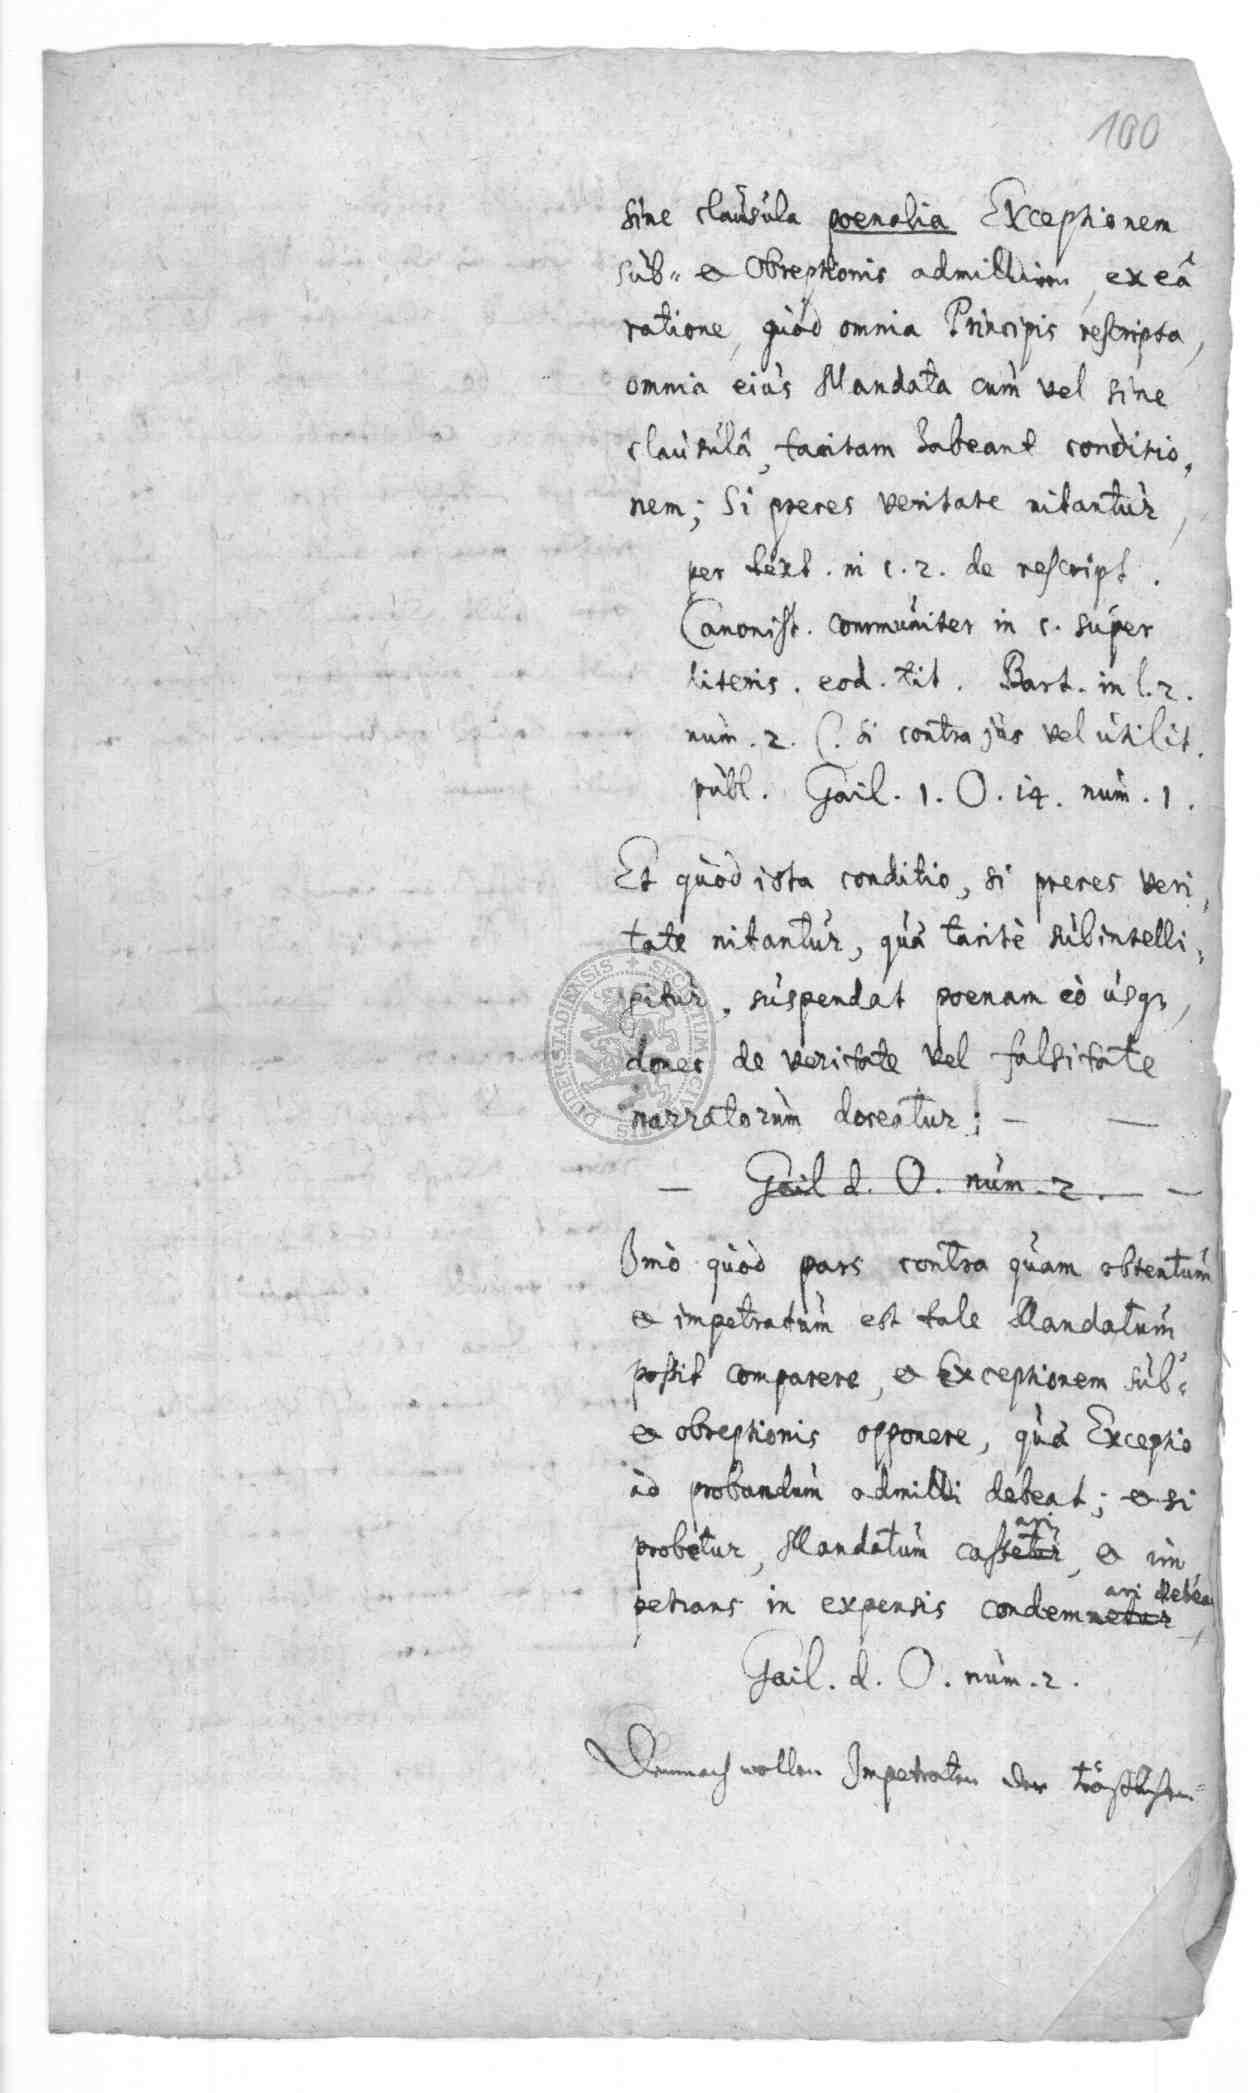 100
sine clausula poenalia Exceptionem
sub= & Obreptionis admittion, ex eâ
ratione, quòd omnia Principis rescripta,
omnia eius Mandata cum vel sine
clausulâ, tacitam habeant conditio,
nem; Si preces veritate nitantur,
per text. in c. 2. de rescript.
Canonist. communiter in c. super
literis. eod. tit. Bart. in l. 2.
num. 2. C. si contra jus vel utilit.
publ. Gail. 1. O. 14. num. 1.
Et quòd ista conditio, si preces veri,
tate nitantur, quà tacitè subintelli,
gitur, suspendat poenam eò usq3,
donec de veritate vel falsitate
narratorum doceatur; — —
— Gail d. O. num. 2. — —
Imò quòd pars contra quam obtentum
& impetratum est tale Mandatum
possit comparere, & Exceptionem sub=
& obreptionis opponere, quà Exceptio
ad probandum admitti debeat; & si
probetur, Mandatum cassetur ari, & im
petrans in expensis condemnetur ari debea,
Gail. d. O. num. 2.
Demnach wollen Impetraten der tröstlichen=
SECRETUM CIVITATIS DUDERSTADIENSIS